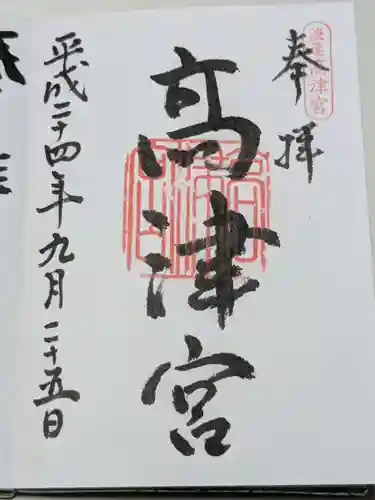 奉拝
高津宮
平成二十四年九月二十五日